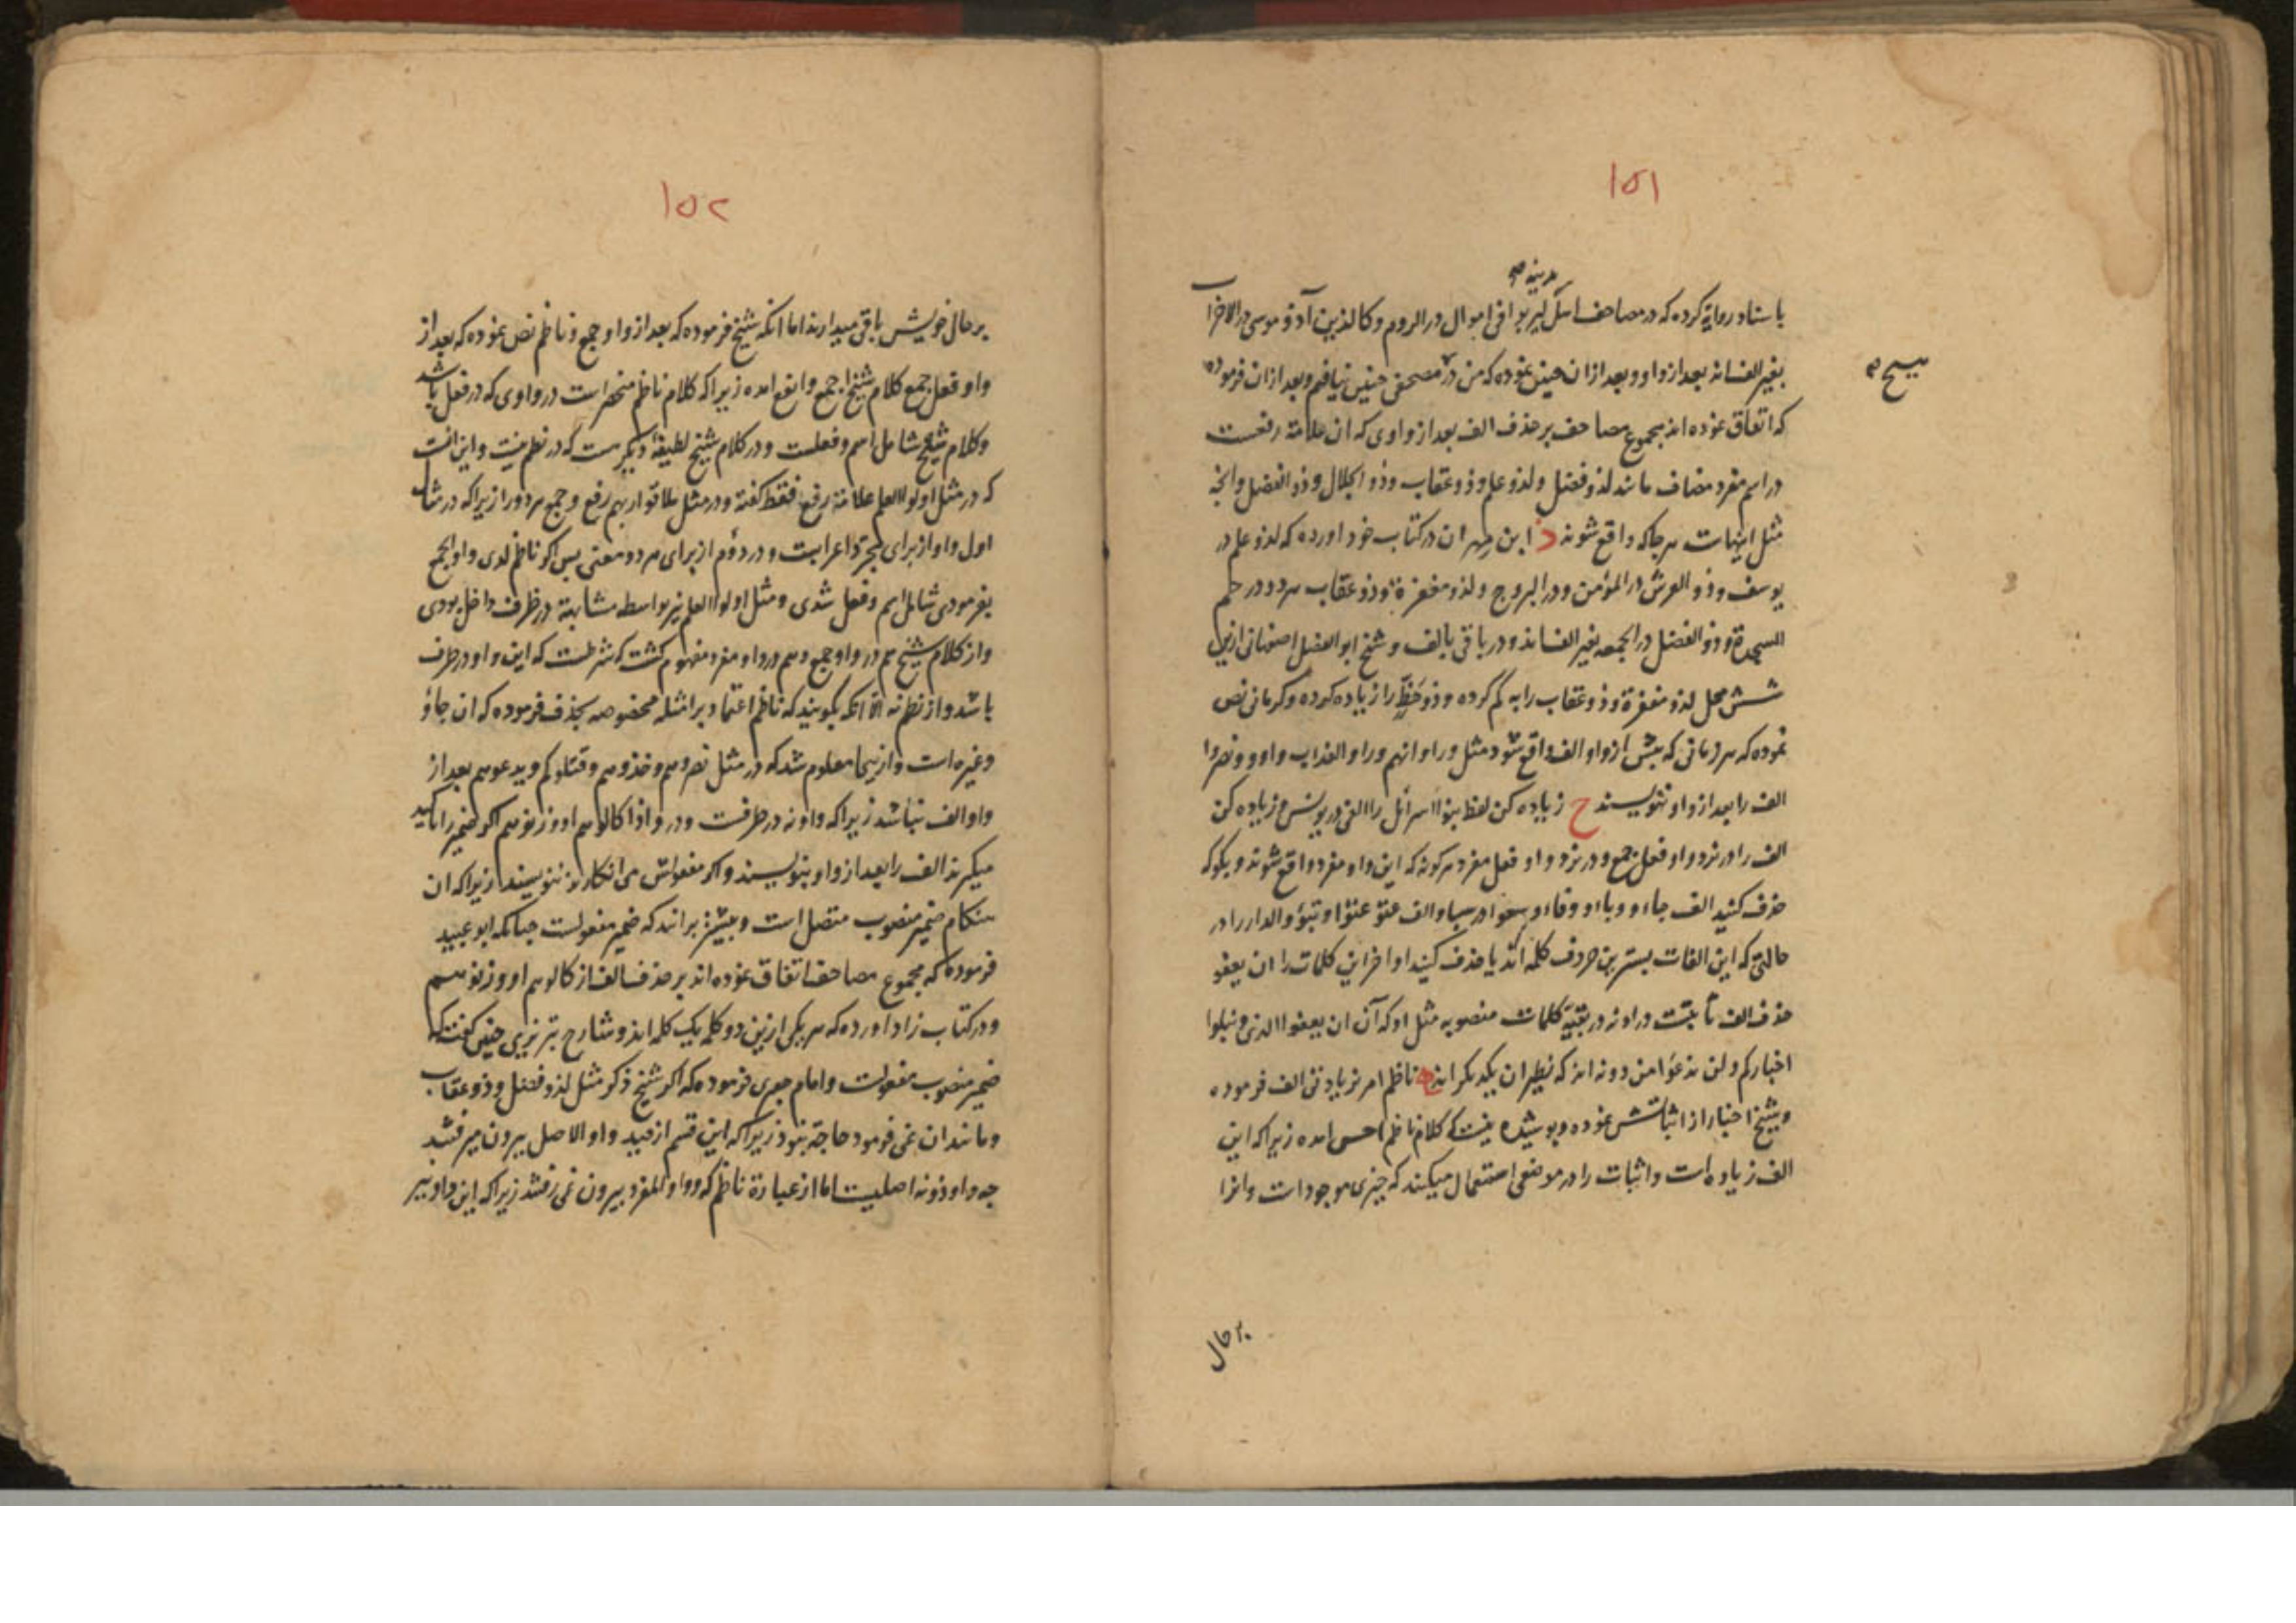 ١٥١
مدینه صح
باسناد روایة کرده که در مصاحف اهل لیربوا فی اموال در الروم و کالذین آذو موسی در الاحزاب
بغیر الف‌اند بعد از واو و بعد ازان چنین نموده که من در مصحفی چنین نیافتم و بعد ازان فرموده
هیچ صح
که اتفاق نموده اند مجموع مصاحف بر حذف الف بعد از واوی که ان علامة رفعست
در اسم مفرد مضاف مانند لذو فضل و لذو علم و ذو عقاب و ذو الجلال و ذو الفضل و انچه
مثل اینهاست هر جا که واقع شوند د ابن مهران در کتاب خود اورده که لذو علم در
یوسف و ذو العرش در المؤمن و در البروج و لذو مغفرة و ذو عقاب هر دو در حم
السجدة و ذو الفضل در الجمعه بغیر الف‌اند و در باقی بالف و شیخ ابو الفضل اصفهانی ازین
شش محل لذو مغفرة و ذو عقاب را به کم کرده و ذو حَظٍّ را زیاده کرده و کرمانی نص
نموده که هر زمانی که پیش از واو الف واقع شود مثل وراوانهم وراو العذاب و اوو و نصروا
الف را بعد از واو ننویسند ح زیاده کن لفظ بنوا اسرائل را الفی در یونس و زیاده کن
الف را در نزد واو فعل جمع و در نزد واو فعل مفرد هر کونه که این واو مفرد واقع شوند و بگو که
حذف کنید الف جاءو و باءو و فاءو و سعو در سبا و الف عتو عتوًا و تبوؤ والدار را در
حالتی که این الفات پسترین حروف کلمه اند یا حذف کنید اواخر این کلمات را ان یعفو
حذف الف ثابتست در او نه در بقیّه کلمات منصوبه مثل او که آن ان یعفوا الذی و نبلوا
اخبارکم و لن ندعوَا من دونه اند که نظیران یکدیکر اند ناظم امر بزیادتی الف فرموده
و شیخ اخبار از اثباتش نموده و پوشیده نیست که کلام ناظم احسن امده زیرا که این
الف زیاده است و اثبات را در موضعی استعمال میکنند که چیزی موجود است و انرا
بر حال
١٥٢
بر حال خویش باقی میدارند اما انکه شیخ فرموده که بعد از واو جمع و ناظم نص نموده که بعد از
واو فعل جمع کلام شیخ اجمع واقع امده زیرا که کلام ناظم منحصر است در واوی که در فعل باشد
و کلام شیخ شامل اسم و فعلست و در کلام شیخ لطیفهٔ دیکر هست که در نظم نیست و این انست
که در مثل اولوا العلم علامة رفع فقط کفته و در مثل ملاقوا ربهم رفع و جمع هر دو را زیرا که در مثال
اول واو از برای مجرّد اعرابست و در دوّم از برای هر دو معنی پس اکر ناظم لدی واو الجمع
بفرمودی شامل اسم و فعل شدی و مثل اولوا العلم نیز بواسطه مشابهة در ظرف داخل بودی
و از کلام شیخ هم در واو جمع و هم در واو مفرد مفهوم کشت که شرطست که این واو در طرف
باشد و از نظم نه الّا انکه بکویند که ناظم اعتماد بر امثله مخصوصه بحذف فرموده که ان جاؤ
و غیره است و ازینجا معلوم شد که در مثل نصروهم و خذوهم و قتلوکم و یدعوهم بعد از
واو الف نباشد زیرا که واو نه در طرفست و در و اذا کالوهم او وزنوهم اکر ضمیر را تاکید
میکیرند الف را بعد از واو بنویسند و اکر مفعولش می انکارند ننویسند زیرا که ان
هنکام ضمیر منصوب متصل است و بیشتر برانند که ضمیر مفعولست چنانکه ابو عبید
فرموده که مجموع مصاحف اتفاق نموده اند بر حذف الف از کالوهم او وزنوهم
و در کتاب زاد اورده که هر یکی ازین دو کلمه یک کلمه اند و شارح تبریزی چنین کفته که
ضمیر منصوب مفعولست و امام جعبری فرموده که اکر شیخ ذکر مثل لذو فضل و ذو عقاب
و مانند ان نمی فرمود حاجة نبود زیرا که این قسم از قید واو الاصل بیرون میرفتند
چه واو ذو نه اصلیست اما از عبارة ناظم که و واو المفرد بیرون نمی رفتند زیرا که این واو نیز